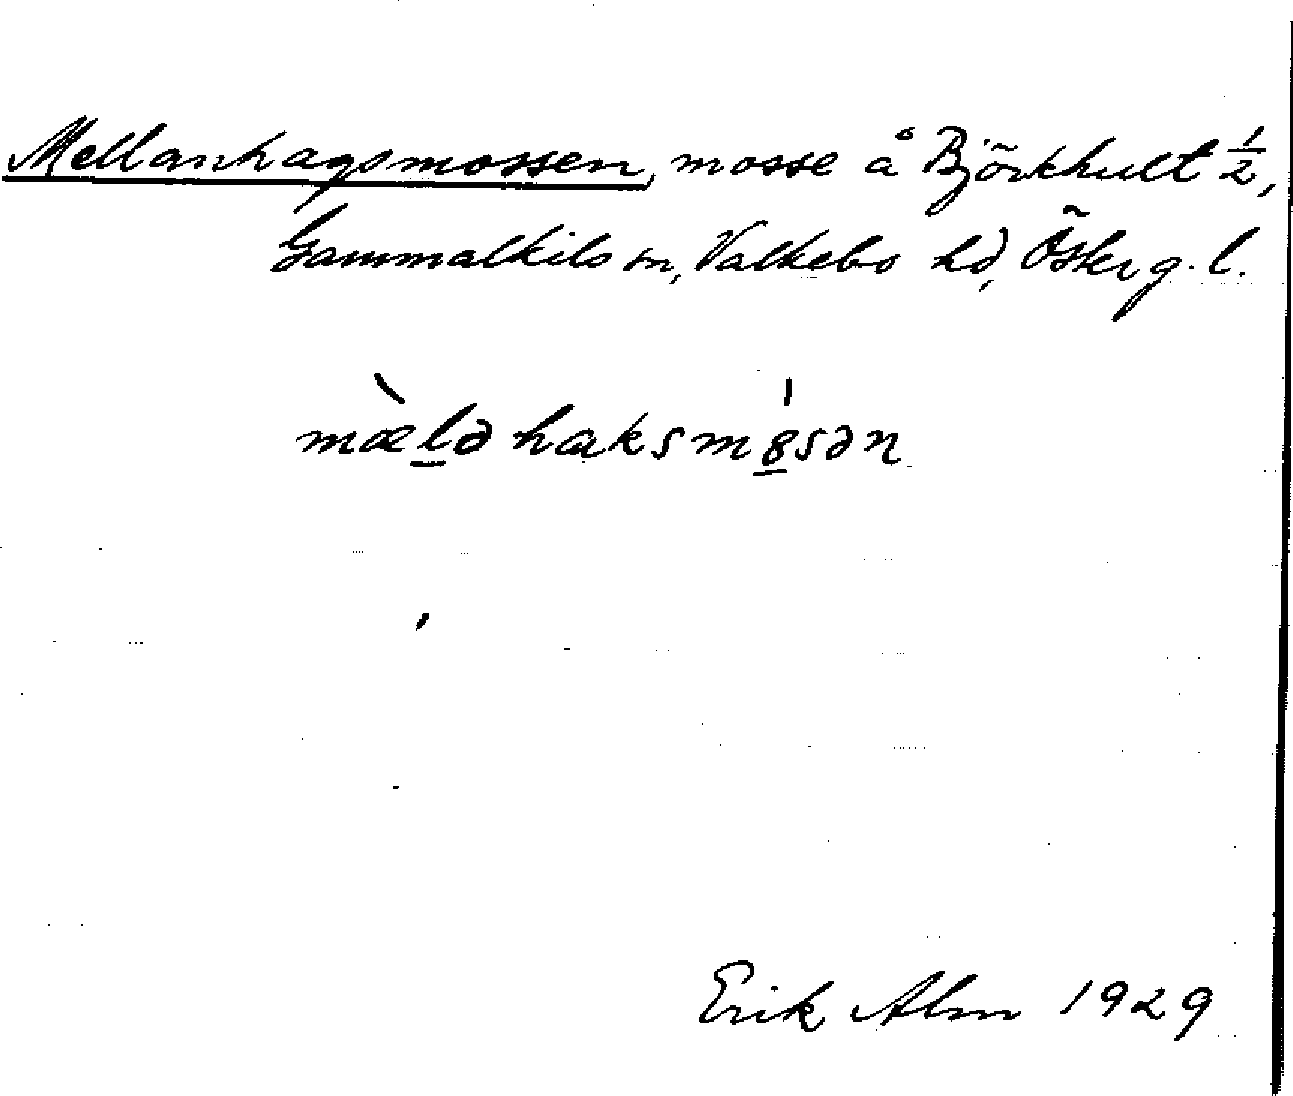 Mellanhagsmossen, mosse å Björkhult 1/2,
Gammalkils sn, Valkebo hd, Österg. l.
mæ̀l̠əhaksmo̠̍sən
Erik Alm 1929